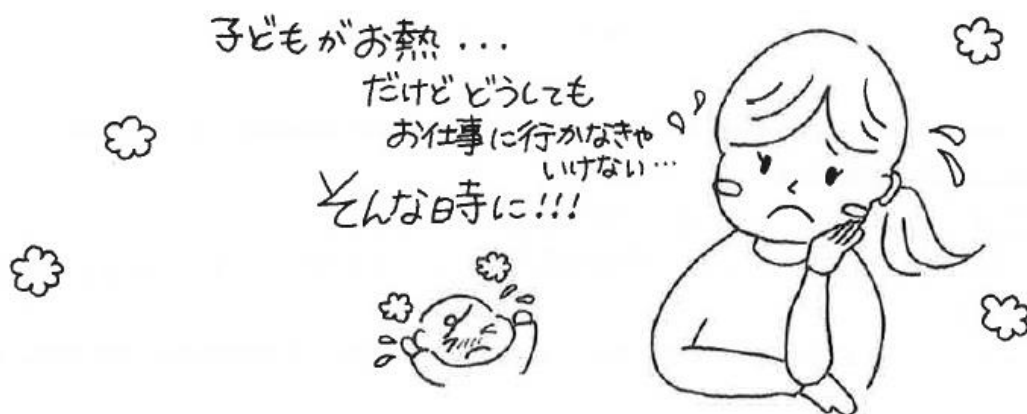 子どもがお熱・・・
だけどどうしても
お仕事に行かなきゃ
いけない…
そんな時に!!!